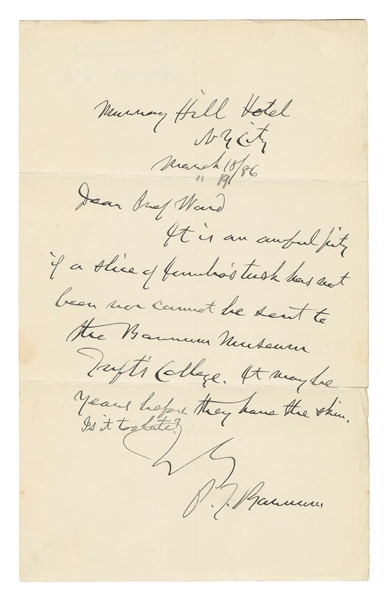 Murray Hill Hotel
N Y City
March 18/86
" 19
Dear Prof Ward
It is an awful pity
if a slice of Jumbo's tusk has not
been nor cannot be sent to
the Barnum Museum
Tufts College. It may be
years before they have the skin.
Is it too late?
P. T. Barnum